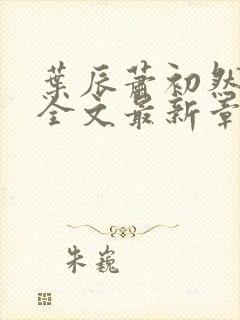 葉辰蕭初然
全文最新章
朱巍